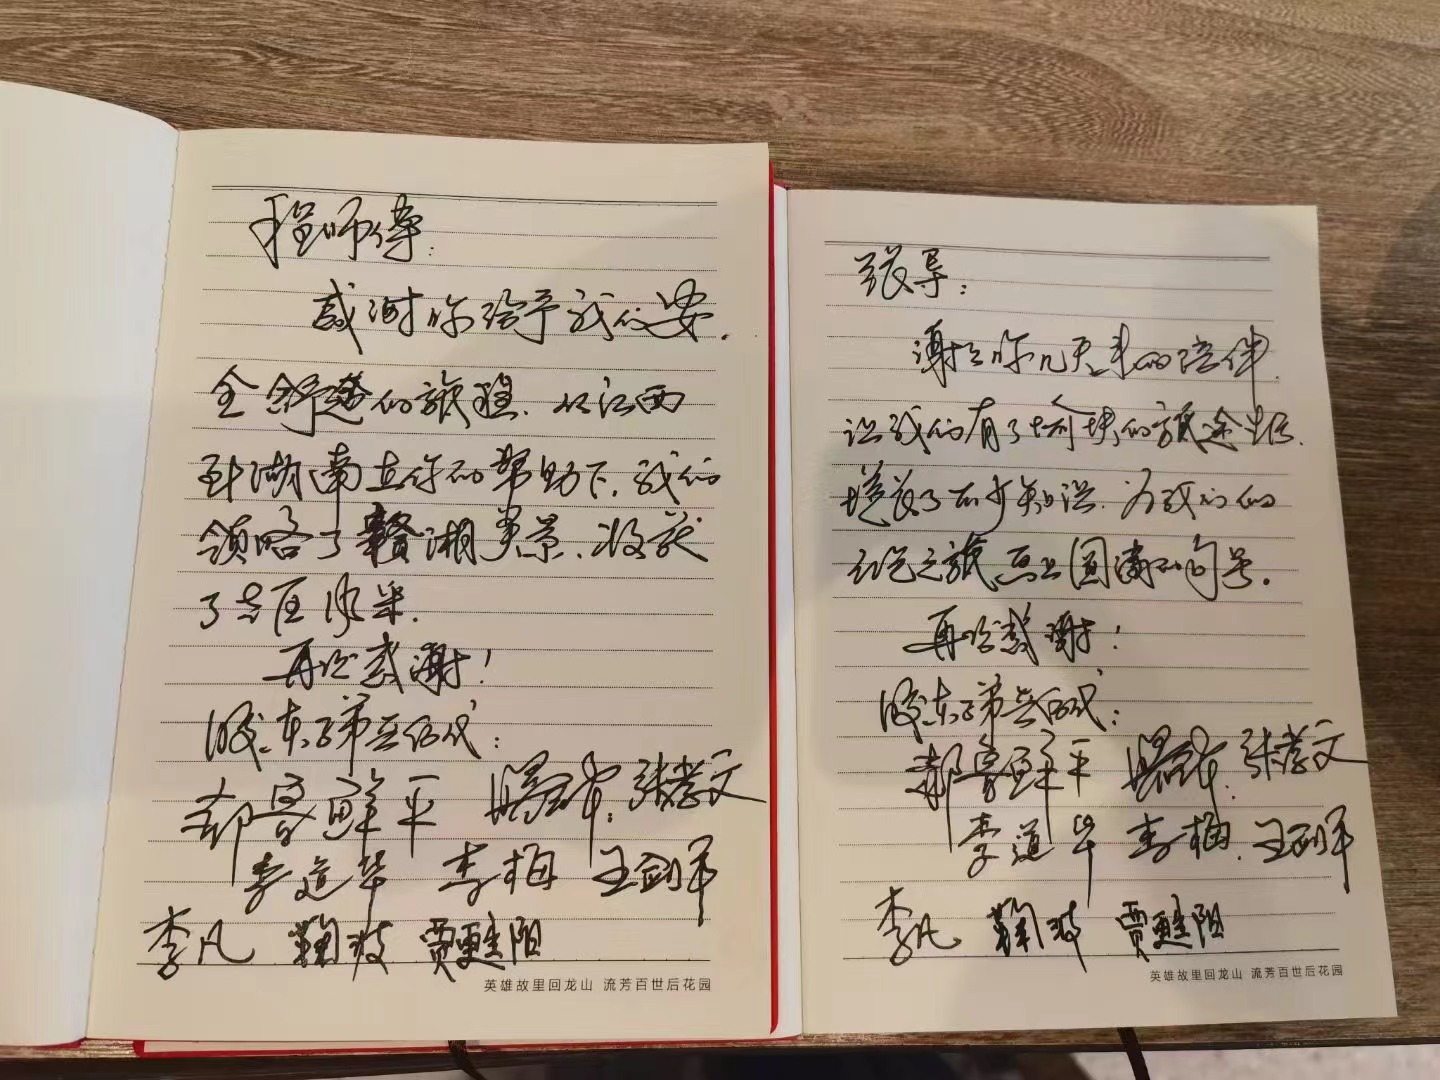 程师傅：
感谢你给予我们安
全舒适的旅程．从江西
到湖南在你的帮助下，我们
领略了赣湘美景，收获
了
再次感谢！
胶东子弟兵后代：
郝鲁鲜平 张孝文
李道华 李梅 王剑军
李凡 鞠波 贾延阳
英雄故里回龙山 流芳百世后花园
张导：
谢谢你几天来的陪伴，
让我们有了愉快的旅途生活．
增长了不少知识．为我们的
红色之旅画上圆满的句号。
再次感谢！
胶东子弟兵后代：
郝鲁鲜平 张孝文
李道华 李梅．王剑军
李凡 鞠波 贾延阳
英雄故里回龙山 流芳百世后花园